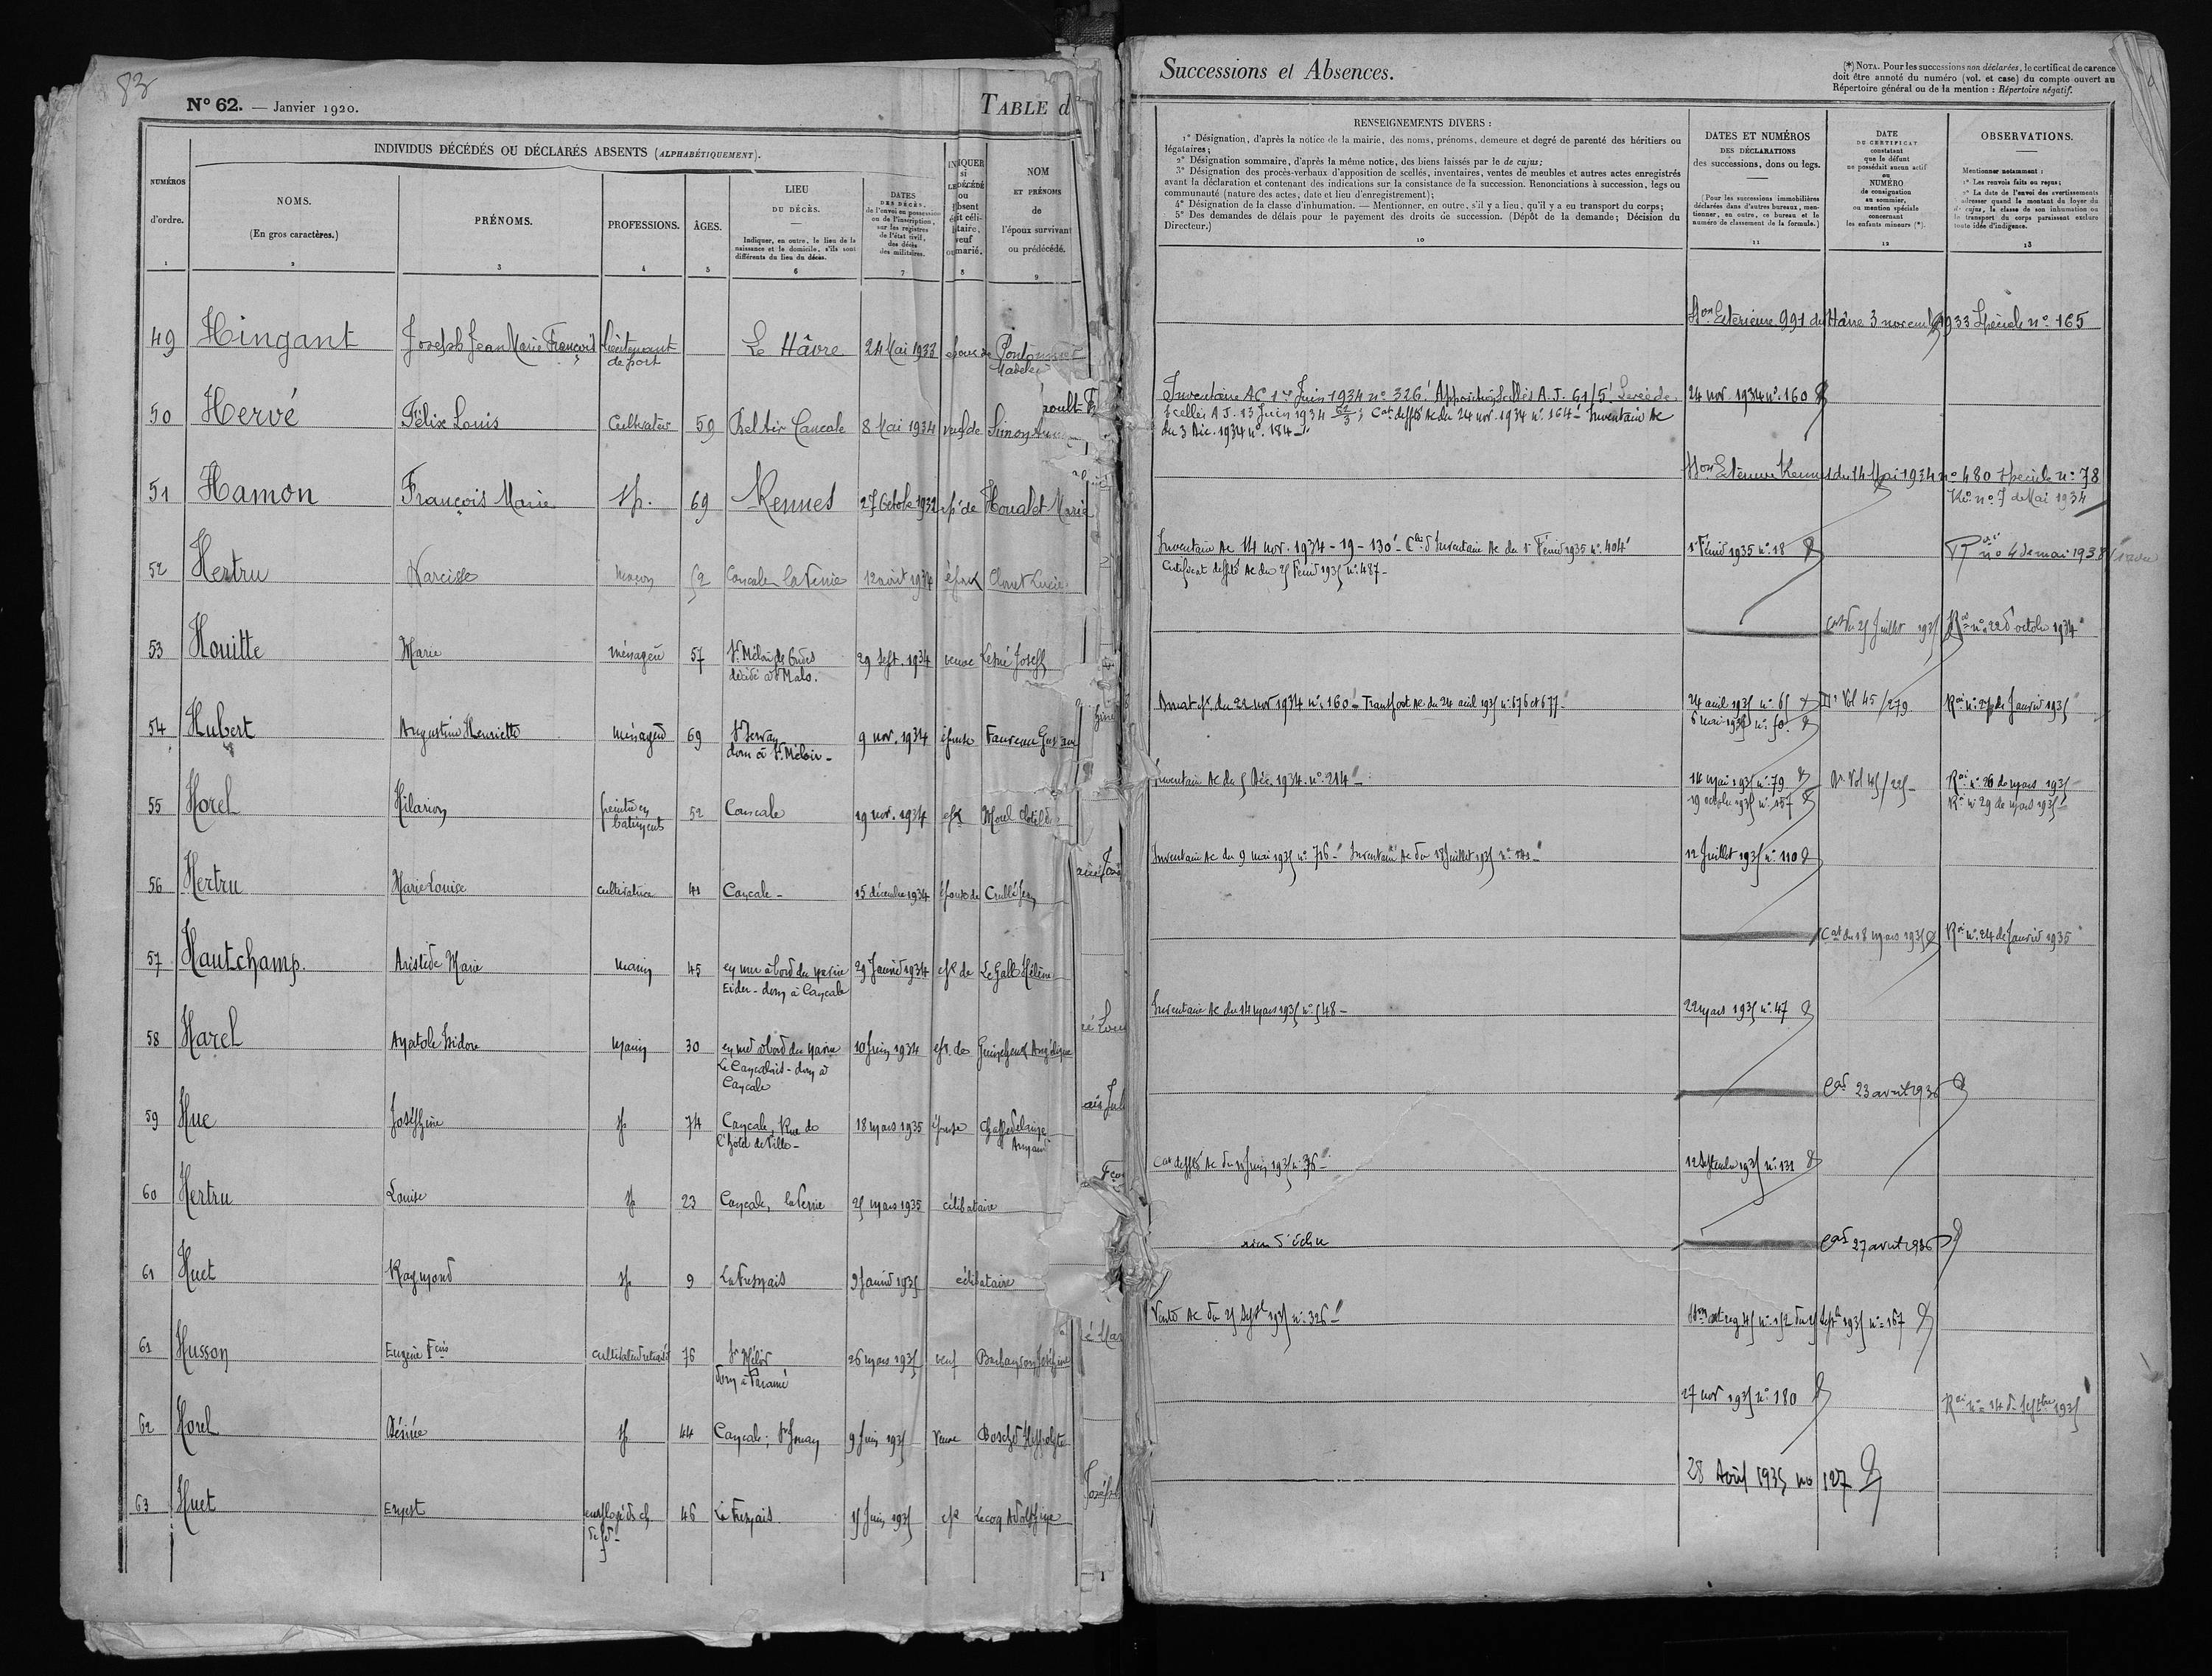 83
N° 62. — Janvier 1920.
TABLE d
INDIVIDUS DÉCÉDÉS OU DÉCLARÉS ABSENTS (ALPHABÉTIQUEMENT).
NUMÉROS d'ordre.
NOMS.
(En gros caractères.)
PRÉNOMS.
PROFESSIONS.
ÂGES.
LIEU
DU DÉCÈS.
Indiquer, en outre, le lieu de la
naissance et le domicile, s'ils sont
différents du lieu du décès.
DATES
DES DÉCÈS,
de l'envoi en possession
ou de l'inscription,
sur les registres
de l'état civil,
des décès
des militaires.
NOM
ET PRÉNOMS
de
l'époux survivant
ou prédécédé.
1 2 3 4 5 6 7 8 9
49 Hingant Joseph Jean Marie François Lieutenant de port Le Hâvre 24 Mai 1933 époux de
50 Hervé Félix Louis Cultivateur 59 Bel Air Cancale 8 Mai 1934 veuf de Simon
51 Hamon François Marie sp. 69 Rennes 27 Octobre 1932 ép. de Houalet Marie
52 Hertru Narcisse maçon 52 Cancale la Venie 12 août 1934 époux
53 Houitte Marie ménagère 57 St Méloir des Ondes
décédé à St Malo. 29 Sept. 1934 veuve Lesné Joseph
54 Hubert Augustine Henriette ménagère 69 St Servan
dom à St Méloir - 9 nov. 1934 épouse Fauveau Gustave
55 Horel Hilarion peintre en
batiments 52 Cancale 19 nov. 1934 épx Morel Clotilde
56 Hertru Marie Louise cultivatrice 41 Cancale - 15 décembre 1934 épouse de
57 Hautchamp. Aristide Marie marin 45 en mer à bord du navire
Eider - dom à Cancale 29 Janvier 1934 epx de Le Gall Hélène
58 Harel Anatole Isidore marin 30 en mer à bord du navire
Le Cancalais - dom à
Cancale 10 Juin 1934 epx de Angélique
59 Hue Joséphine sp 74 Cancale, Rue de
l'hôtel de Ville - 18 mars 1935 épouse
60 Hertru Louise sp 23 Cancale, 25 mars 1935 célibataire
61 Huet Raymond sp 9 La Fresnais 9 Janvier 1935 célibataire
61 Husson Eugène Fcois cultivateur retraité 76 St Méloir
dom à Paramé 26 mars 1935 veuf
62 Horel Désirée sp 44 Cancale; St Jouan 9 Juin 1935 Veuve Hippolyte
63 Huet Ernest employé de ch
de f - 46 La Fresnais. 15 Juin 1935 epx Lecoq Adolphine
Successions et Absences.
(*) NOTA. Pour les successions non déclarées, le certificat de carence
doit être annoté du numéro (vol. et case) du compte ouvert au
Répertoire général ou de la mention : Répertoire négatif.
RENSEIGNEMENTS DIVERS :
1° Désignation, d'après la notice de la mairie, des noms, prénoms, demeure et degré de parenté des héritiers ou
légataires;
2° Désignation sommaire, d'après la même notice, des biens laissés par le de cujus;
3° Désignation des procès-verbaux d'apposition de scellés, inventaires, ventes de meubles et autres actes enregistrés
avant la déclaration et contenant des indications sur la consistance de la succession. Renonciations à succession, legs ou
communauté (nature des actes, date et lieu d'enregistrement);
4° Désignation de la classe d'inhumation. — Mentionner, en outre, s'il y a lieu, qu'il y a eu transport du corps;
5° Des demandes de délais pour le payement des droits de succession. (Dépôt de la demande; Décision du
Directeur.)
DATES ET NUMÉROS
DES DÉCLARATIONS
des successions, dons ou legs.
(Pour les successions immobilières
déclarées dans d'autres bureaux, men-
tionner, en outre, ce bureau et le
numéro de classement de la formule.)
DATE
DU CERTIFICAT
constatant
que le défunt
ne possédait aucun actif
ou
NUMÉRO
de consignation
au sommier,
ou mention spéciale
concernant
les enfants mineurs (*).
OBSERVATIONS.
Mentionner notamment :
1° Les renvois faits ou reçus;
2° La date de l'envoi des avertissements
à adresser quand le montant du loyer du
de cujus, la classe de son inhumation ou
le transport du corps paraissent exclure
toute idée d'indigence.
10 11 12 13
Son Extérieure 991 du Hâvre 3 novembre 1933 Spéciale n° 165
Inventaire AC 1er Juin 1934 n° 326. Apposition scellés A.J. 61/5. Levée de
scellés A J. 13 Juin 1934 62/3; Cat de ppté Ac du 24 nov. 1934 n° 164 - Inventaire Ac
du 3 Déc. 1934 n° 184 -
24 nov. 1934 n° 160
Son Extérieure Rennes du 14 Mai 1934 n° 480 spéciale n° 78
Roi n° 7 de Mai 1934
Inventaire Ac 14 nov. 1934 - 19 - 130 - Clôt. d'Inventaire Ac du 1er Février 1935 n° 404
Certificat de ppté Ac du 25 Février 1935 n° 487 -
1er Février 1935 n° 18
n° 4 de mai 1938
Cat du 25 Juillet 1935
Roi n° 22 d'octobre 1934
du 22 nov 1934 n° 160 - Transport Ac du 24 avril 1935 n° 676 et 677 -
24 avril 1935 n° 65
6 mai 1935 n° 70.
Vol 45/279
Roi n° 27 de Janvier 1935
Inventaire Ac du 5 Déc. 1934. n° 214 -
14 mai 1935 n° 79
19 octobre 1935 n° 157
Vol 45/225 -
Roi n° 26 de mars 1935
Roi n° 29 de mars 1935
Inventaire Ac du 9 mai 1935 n° 716 - Inventaire Ac du 18 Juillet 1935 n°
12 Juillet 1935 n° 110
Cat du 18 mars 1935
Roi n° 24 de Janvier 1935
Inventaire Ac du 14 mars 1935 n° 548 -
22 mars 1935 n° 47
Cat 23 avril 1936
Cat de ppté Ac du 11 Juin 1935 n° 36 -
12 Septembre 1935 n° 132
rien d'échu
Cat 27 avril 1936
Vente Ac du 25 Sept 1935 n° 326 -
n° 152 du 25 Sept 1935 n° 167
27 nov 1935 n° 180
Roi n° 14 de Septbre 1935
28 Août 1935 no 127